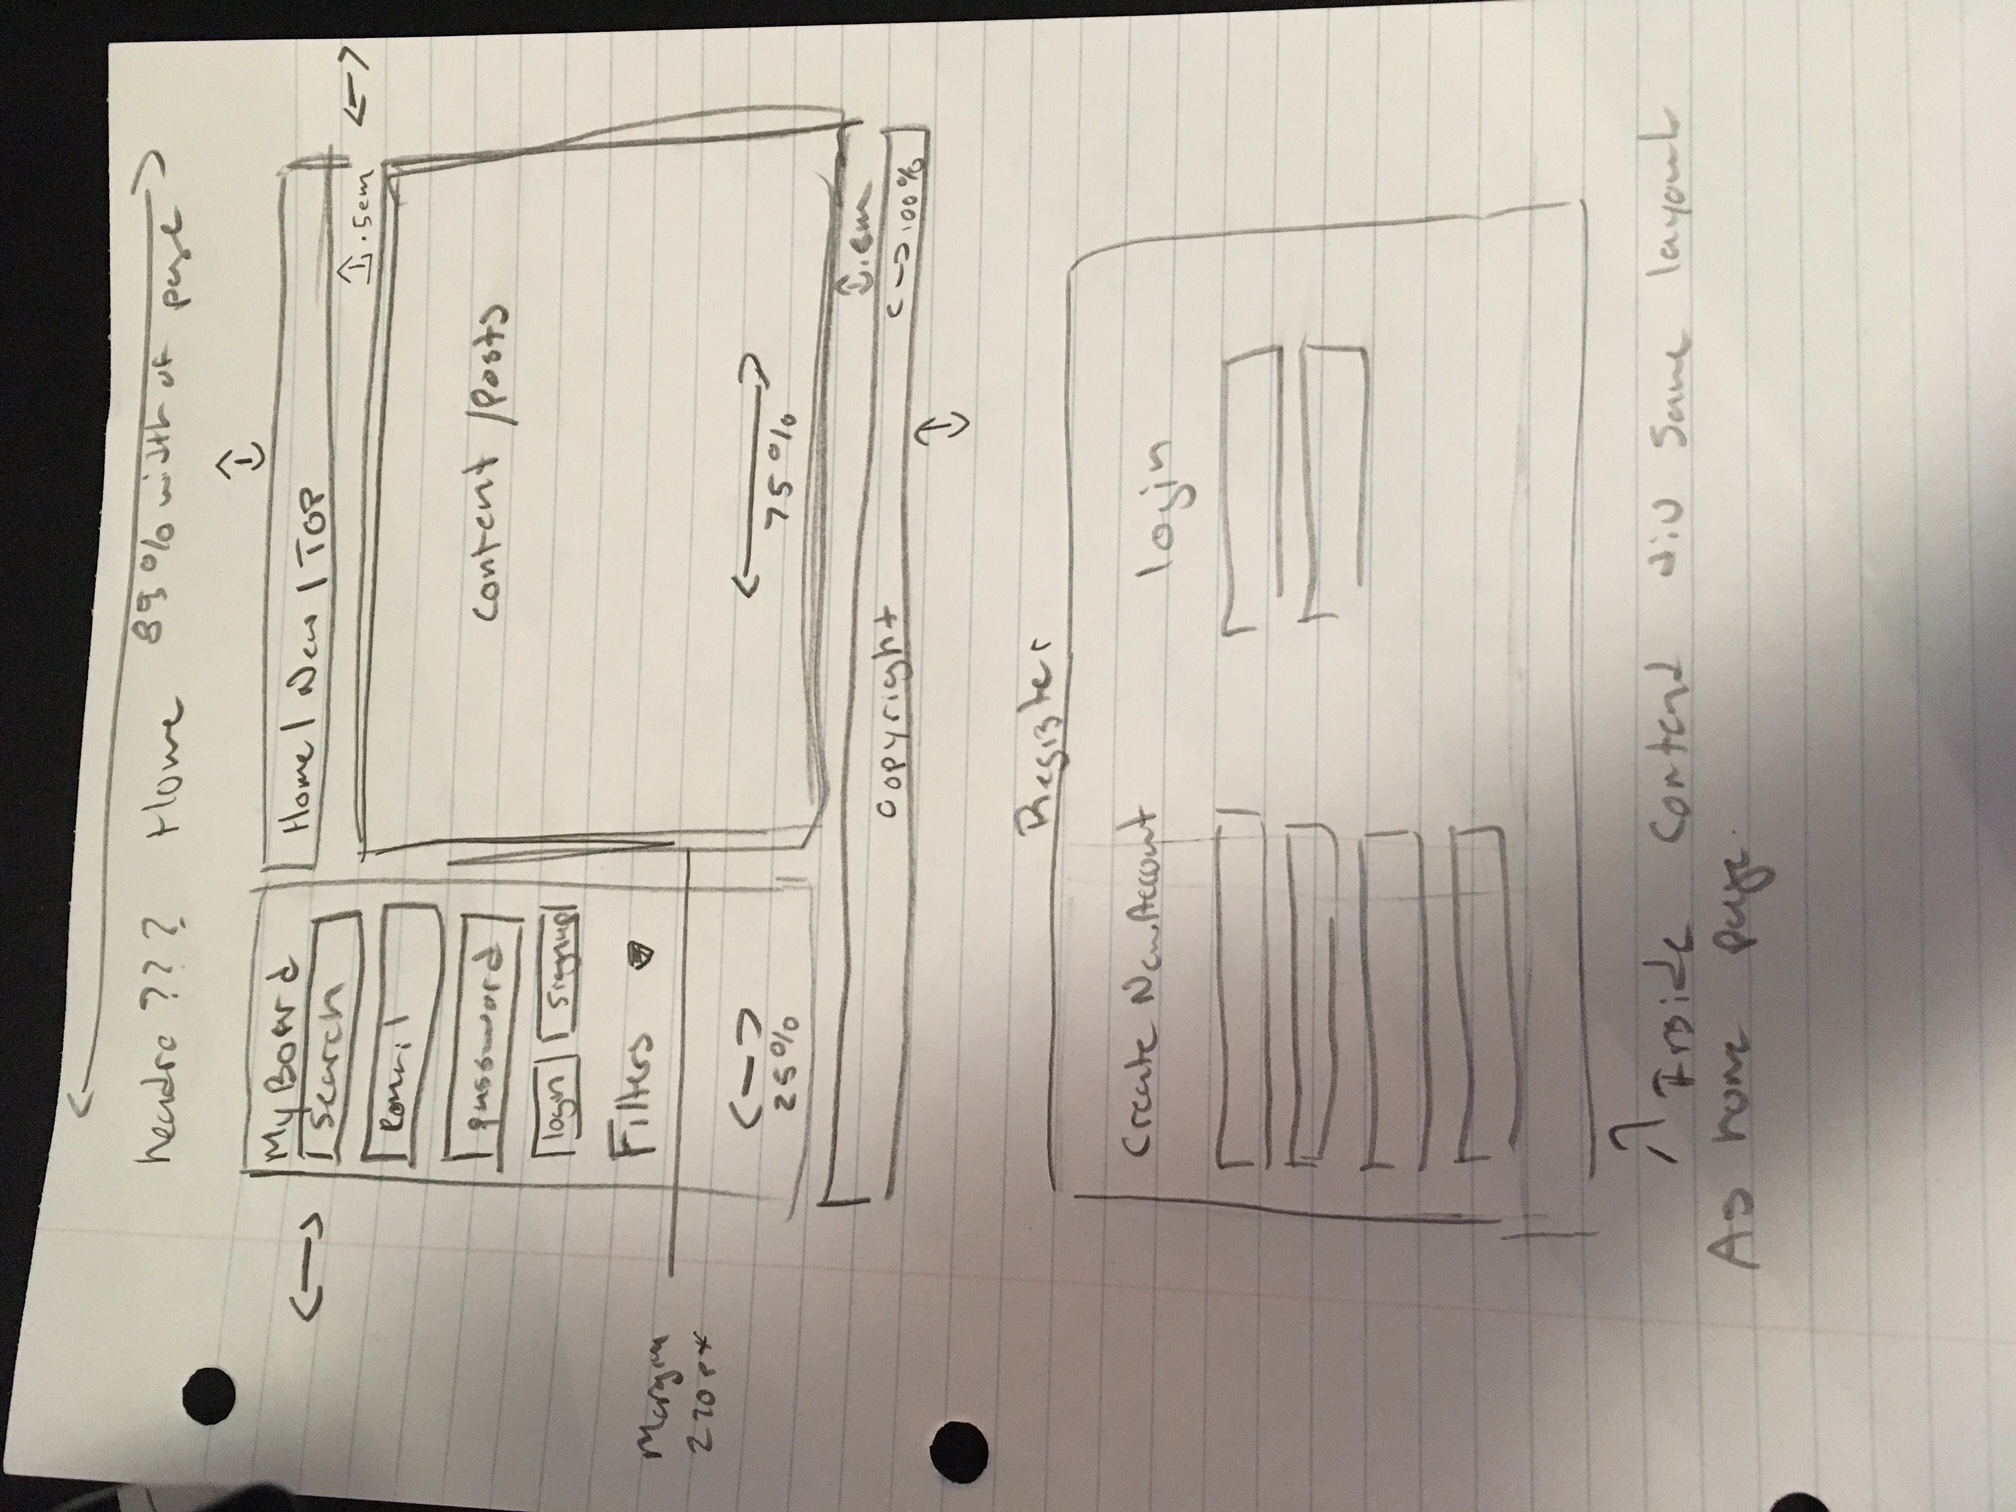 Home 89% width of page
My Board
Search
Email
password
login signup
Filters
Home | New | TOP
.5em
Content / Posts
Margin
270px
25%
75%
.5em
Copyright
100%
Register
Create New Account
login
Inside Content div Same layout
As home page.